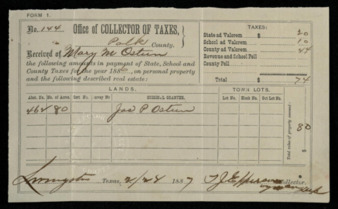 FORM 1.
No. 144 Office of COLLECTOR OF TAXES,
Polk County.
Received of Mary M Osteen
the following amounts in payment of State, School and
County Taxes for the year 188, on personal property
and the following described real estate:
TAXES:
State ad Valorem $
School ad Valorem
County ad Valorem
Revenue and School Poll
County Poll
Total $ 74
LANDS.
TOWN LOTS.
Abst. No. No. of Acres Cert. No. Survey No. ORIGINAL GRANTEE. Lot No. Block No. Out Lot No. Block No.
Total value of property assessed.
464 80 Jas P Osteen 80
Livingston Texas, 2/24 1887